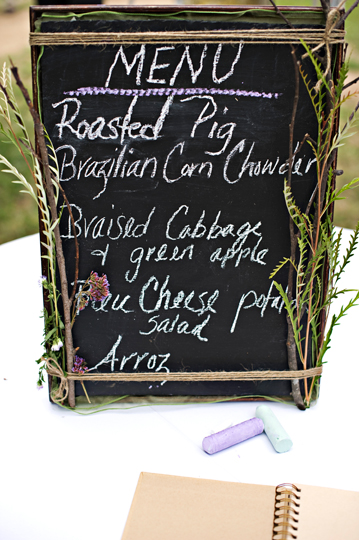 MENU
Roasted Pig
Brazilian Corn Chowder
Braised Cabbage
& green apple
Cheese potato
salad
Arroz